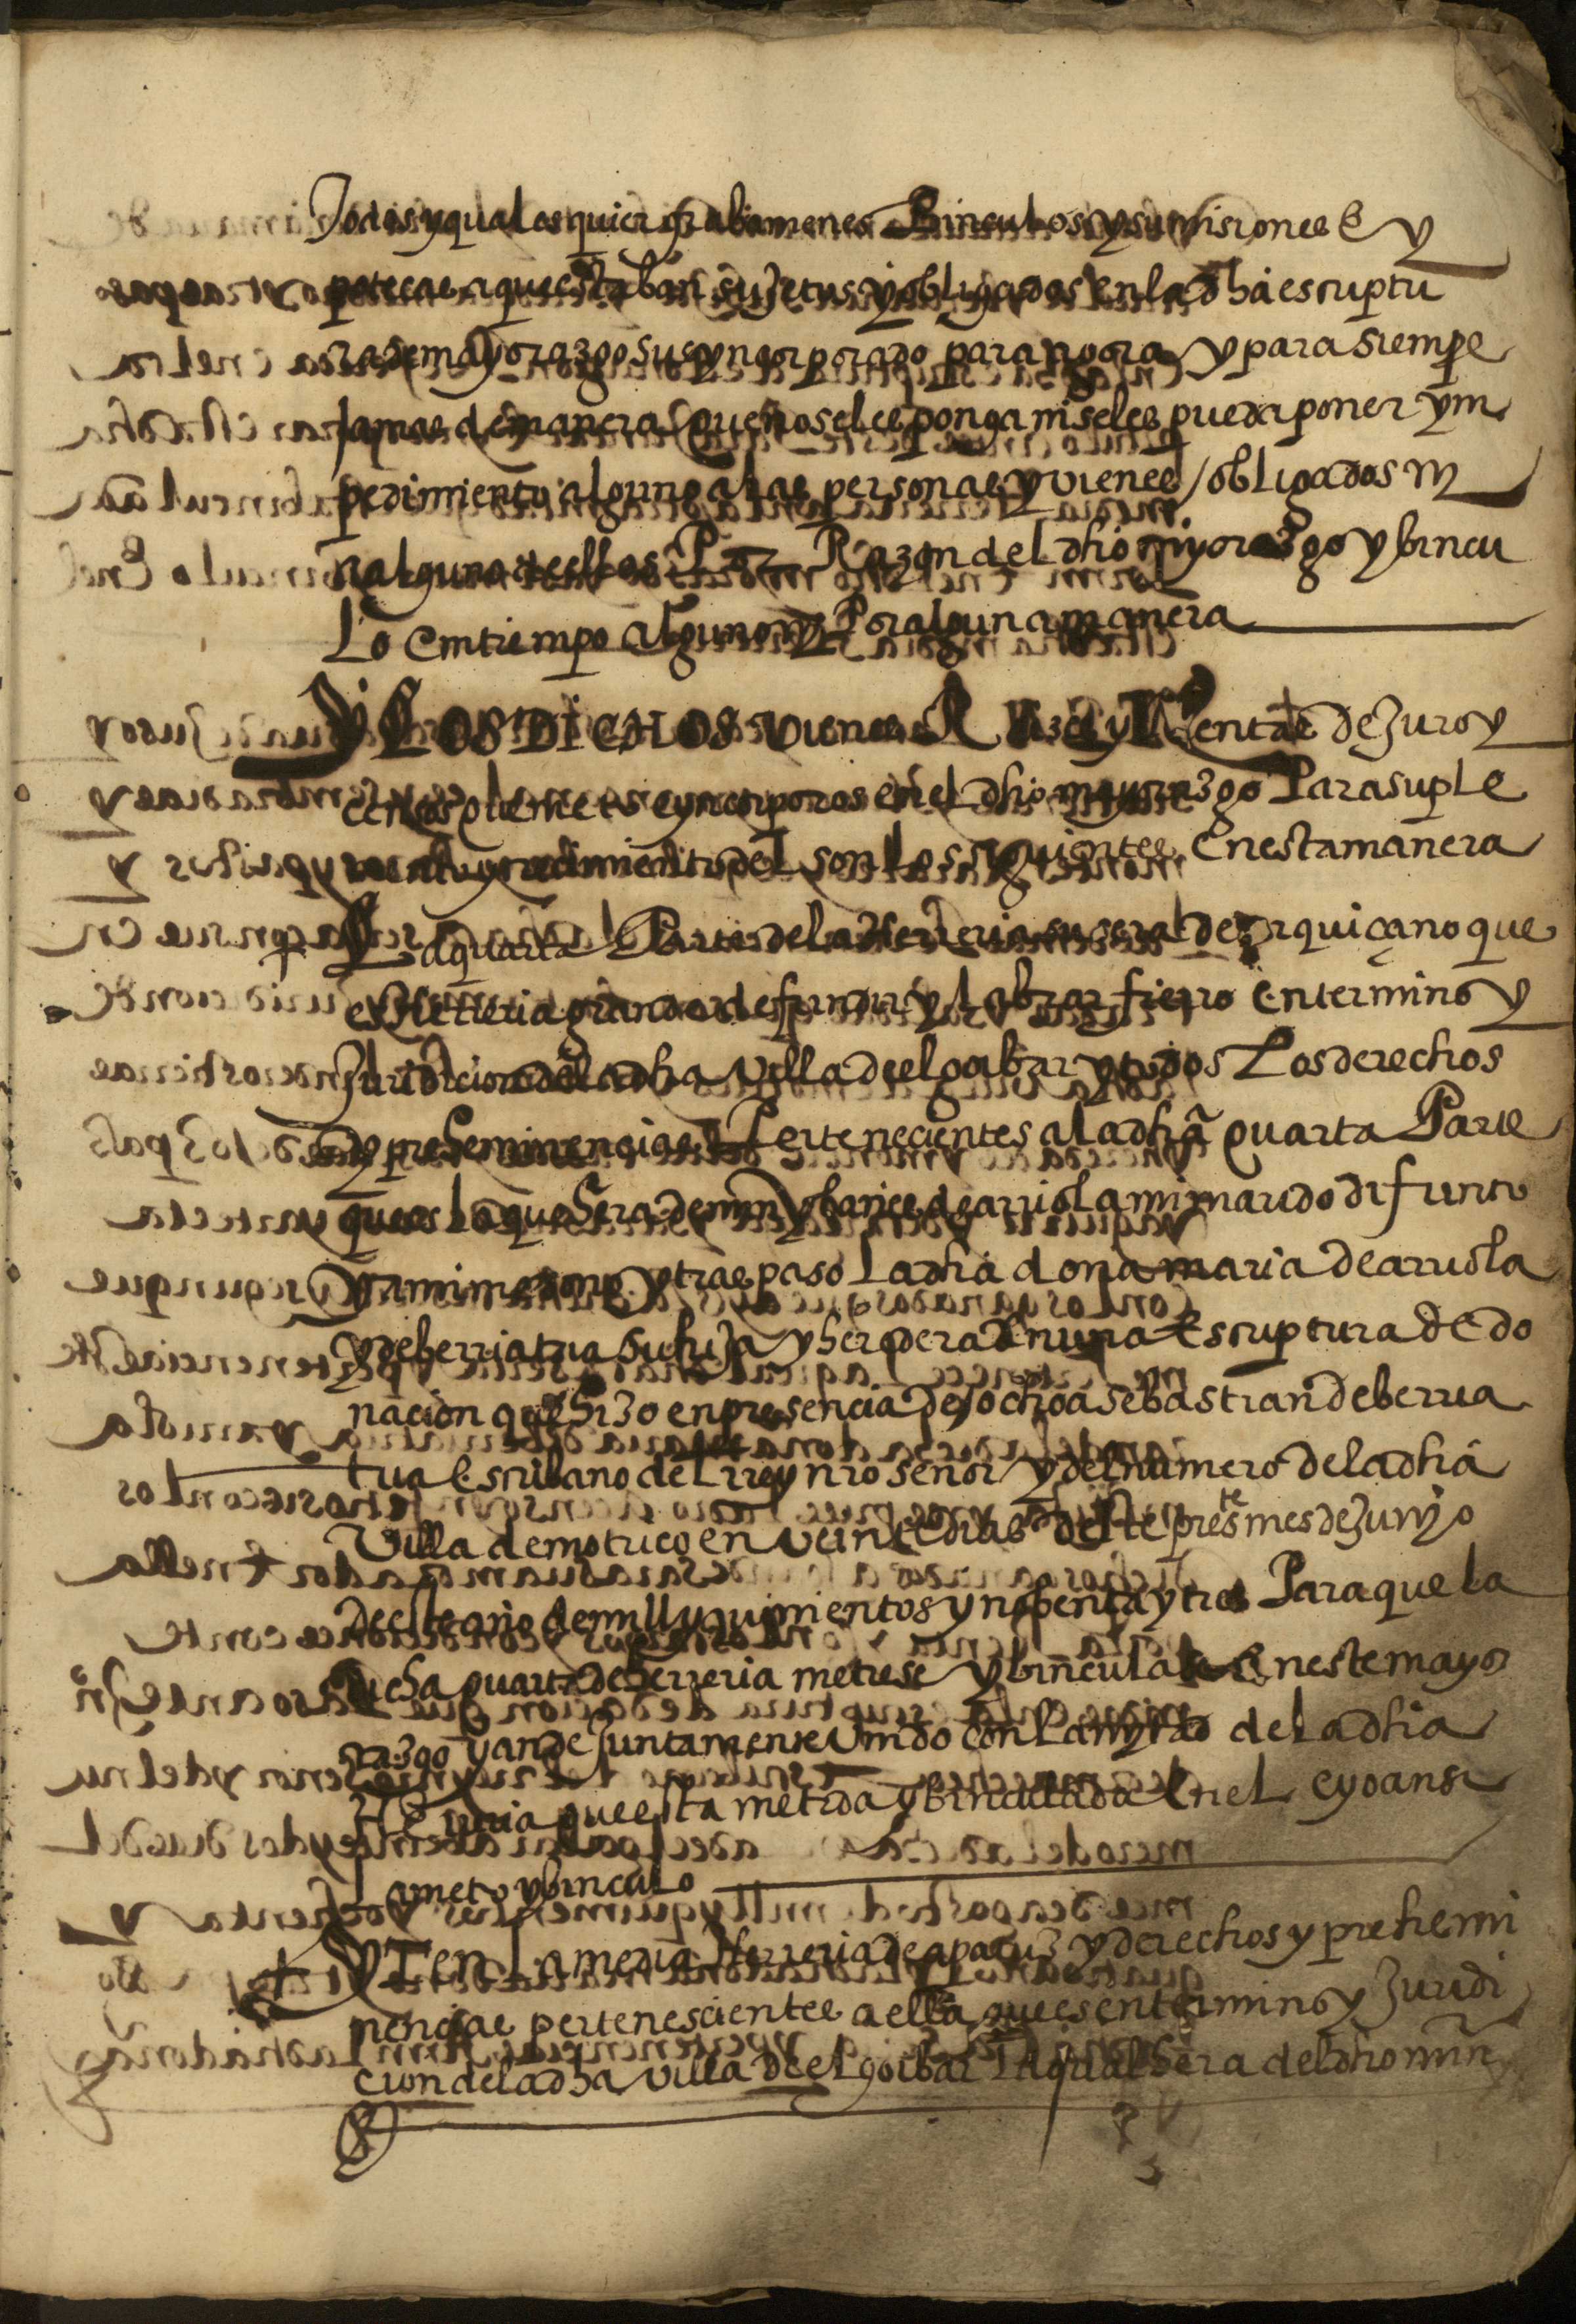 Todos y quales quier grabamenes Binculos y sumisiones E y
potecas a que estaban sujetas y obligados en la dha escriptu
ra de mayorazgo suso yncorporado para agora y para siempre
jamas de manera que no se les ponga ni se les pueda poner ym
pedimiento alguno a las personas y vienes obligados ni
n alguno de ellos Por Razon del dho mayorazgo y bincu
lo en tiempo alguno ni Por alguna manera
Y LOS DICHOS vienes Raizes y Rentas de Juro y
censos que meto e yncorporo en el dho mayorazgo Para suple
mento y del son los siguientes En esta manera
La quarta Parte de la Herreria de yrquiçano que
es Herreria grande de fundir y labrar fierro en termino y
Juridicion de la dha Villa de elgoibar y todos Los derechos
y preheminencias Pertenecientes a la dha quarta Parte
que es la que hera de min ybañes de arriola mi marido difunto
y a mi me dono y traspaso La dha doña maria de arriola
y de berriatua su hija y heredera En una Escriptura de do
nacion que Hizo en presencia de jo ochoa sebastian de berria
tua Escribano del rrey nro señor y del numero de la dha
Villa de motrico en veinte dias deste preste mes de Junyo
deste año de mill y quinientos y nobenta y tres Para que la
dicha quarta de Herreria metiese y binculase En este mayo
razgo y ande Juntamente Vnido con La mytad de La dha
Herreria que esta metida y binculada En el e yo ansi
la meto y binculo
YTen La media Herreria de apatriz y derechos y prehemi
nencias pertenescientes a ella que es en termino y Juridi
cion de la dha villa de elgoibar La qual hera del dho min